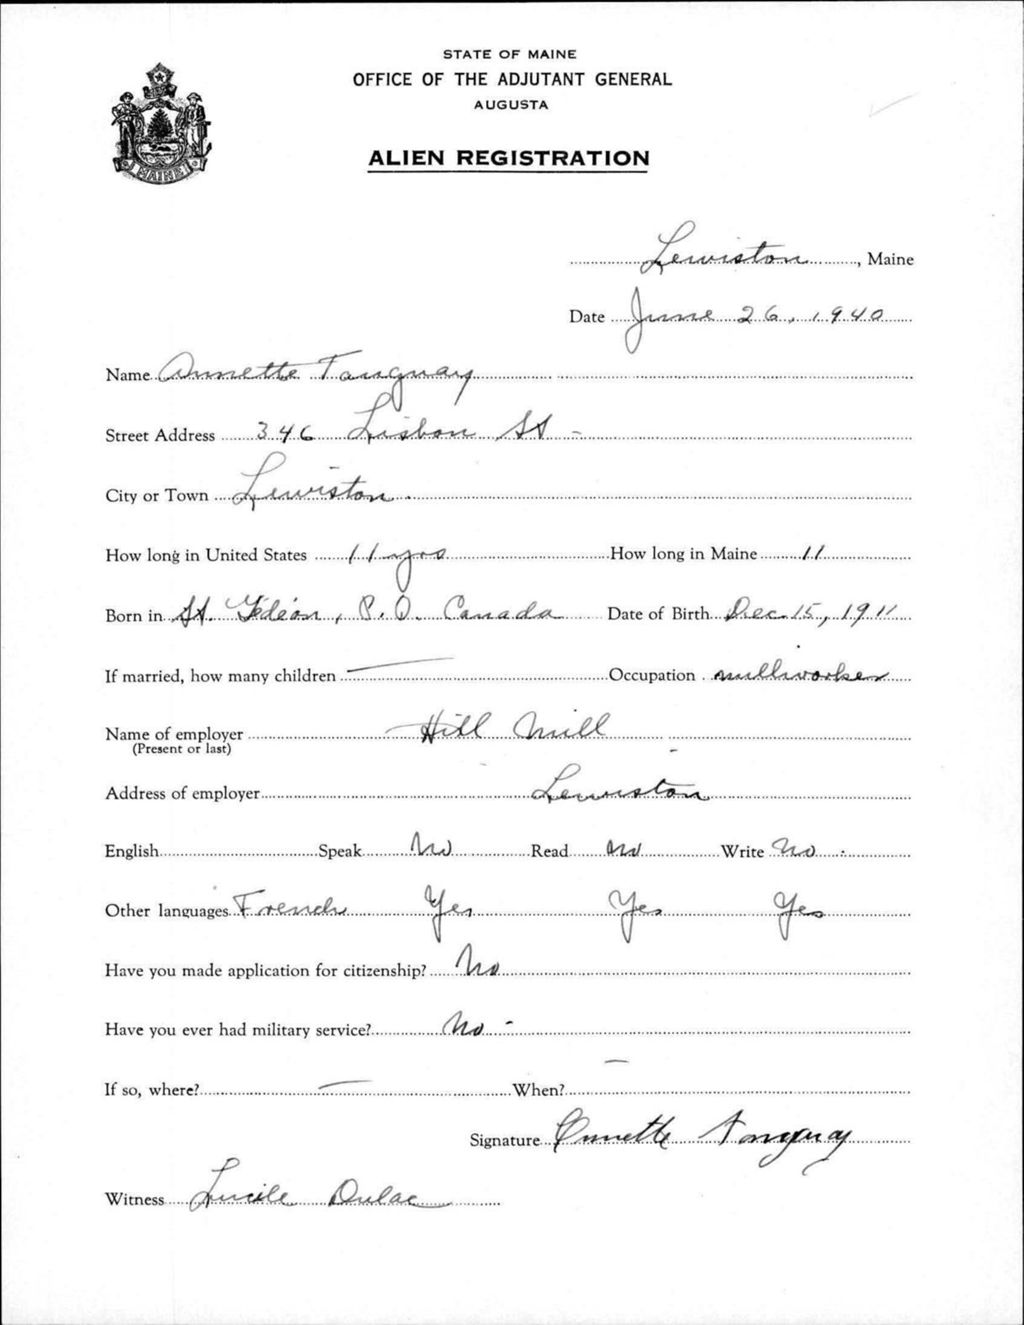 STATE OF MAINE
OFFICE OF THE ADJUTANT GENERAL
AUGUSTA
ALIEN REGISTRATION
MAINE
Lewiston, Maine
Date June 26, 1940
Name Annette Tanguay
Street Address 346 Lisbon St -
City or Town Lewiston
How long in United States 11 yrs How long in Maine 11
Born in St. Gédéon, P. Q. Canada Date of Birth Dec 15, 1911
If married, how many children — Occupation millworker
Name of employer Hill Mill
(Present or last)
Address of employer Lewiston
English Speak No Read No Write No
Other languages French Yes Yes Yes
Have you made application for citizenship? No
Have you ever had military service? No -
If so, where? — When? —
Signature Annette Tanguay
Witness Lucile Dulac